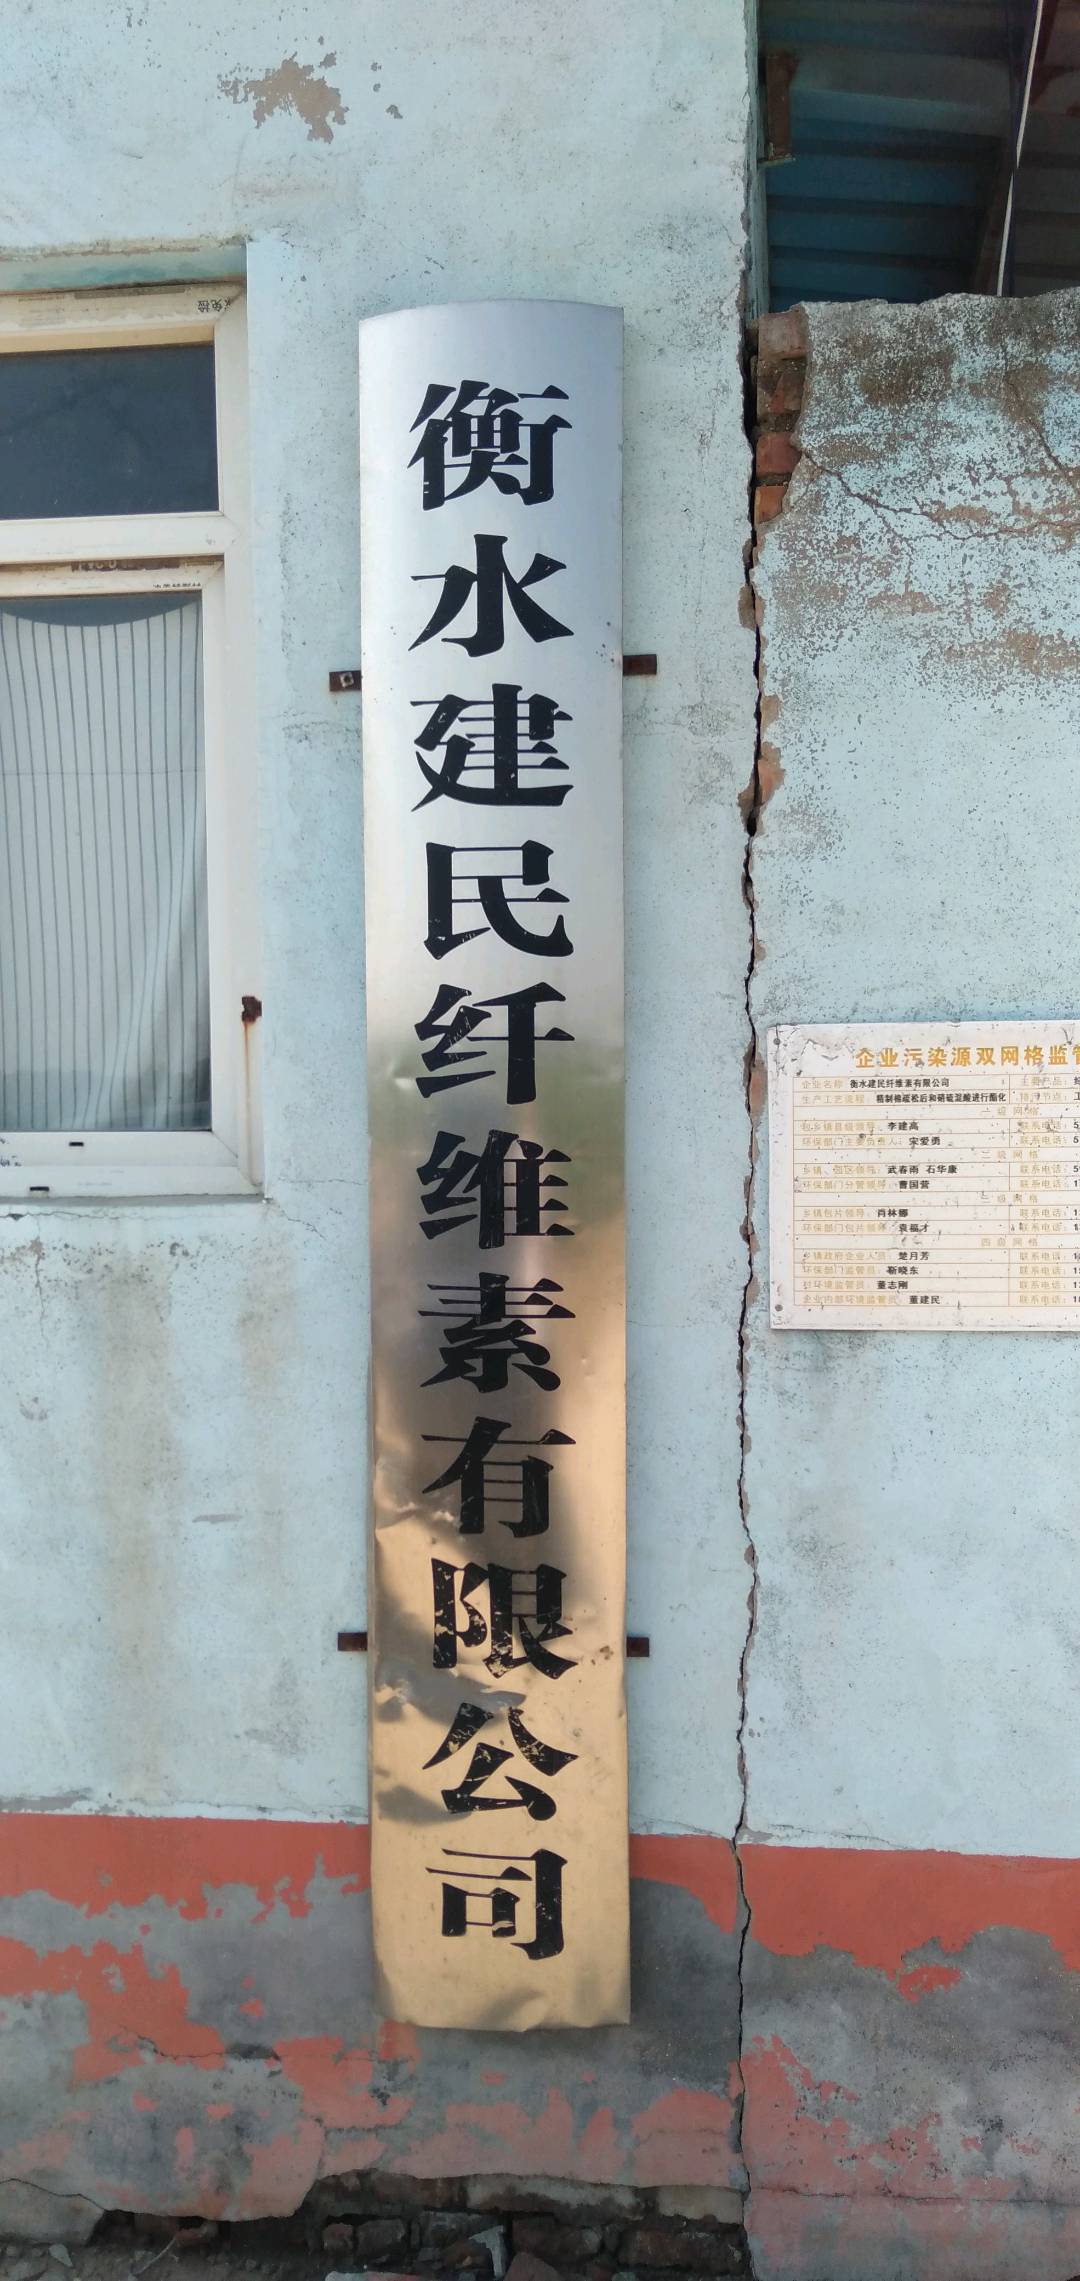 衡水建民纤维素有限公司
企业污染源双网格监管
企业名称 衡水建民纤维素有限公司 主要产品：
生产工艺流程： 精制棉疏松后和硝硫混酸进行酯化 排污节点：
一级网格
包乡镇县级领导： 李建高 联系电话：
环保部门主要负责人： 宋爱勇 联系电话：
二级网格
乡镇、园区领导： 武春雨 石华康 联系电话：
环保部门分管领导： 曹国营 联系电话：
三级网格
乡镇包片领导： 肖林娜 联系电话：
环保部门包片领导： 袁福才 联系电话：
四级网格
乡镇政府企业人员： 楚月芳 联系电话：
环保部门监管员： 靳晓东 联系电话：
村环境监管员： 董志刚 联系电话：
企业内部环境监管员： 董建民 联系电话：
免检